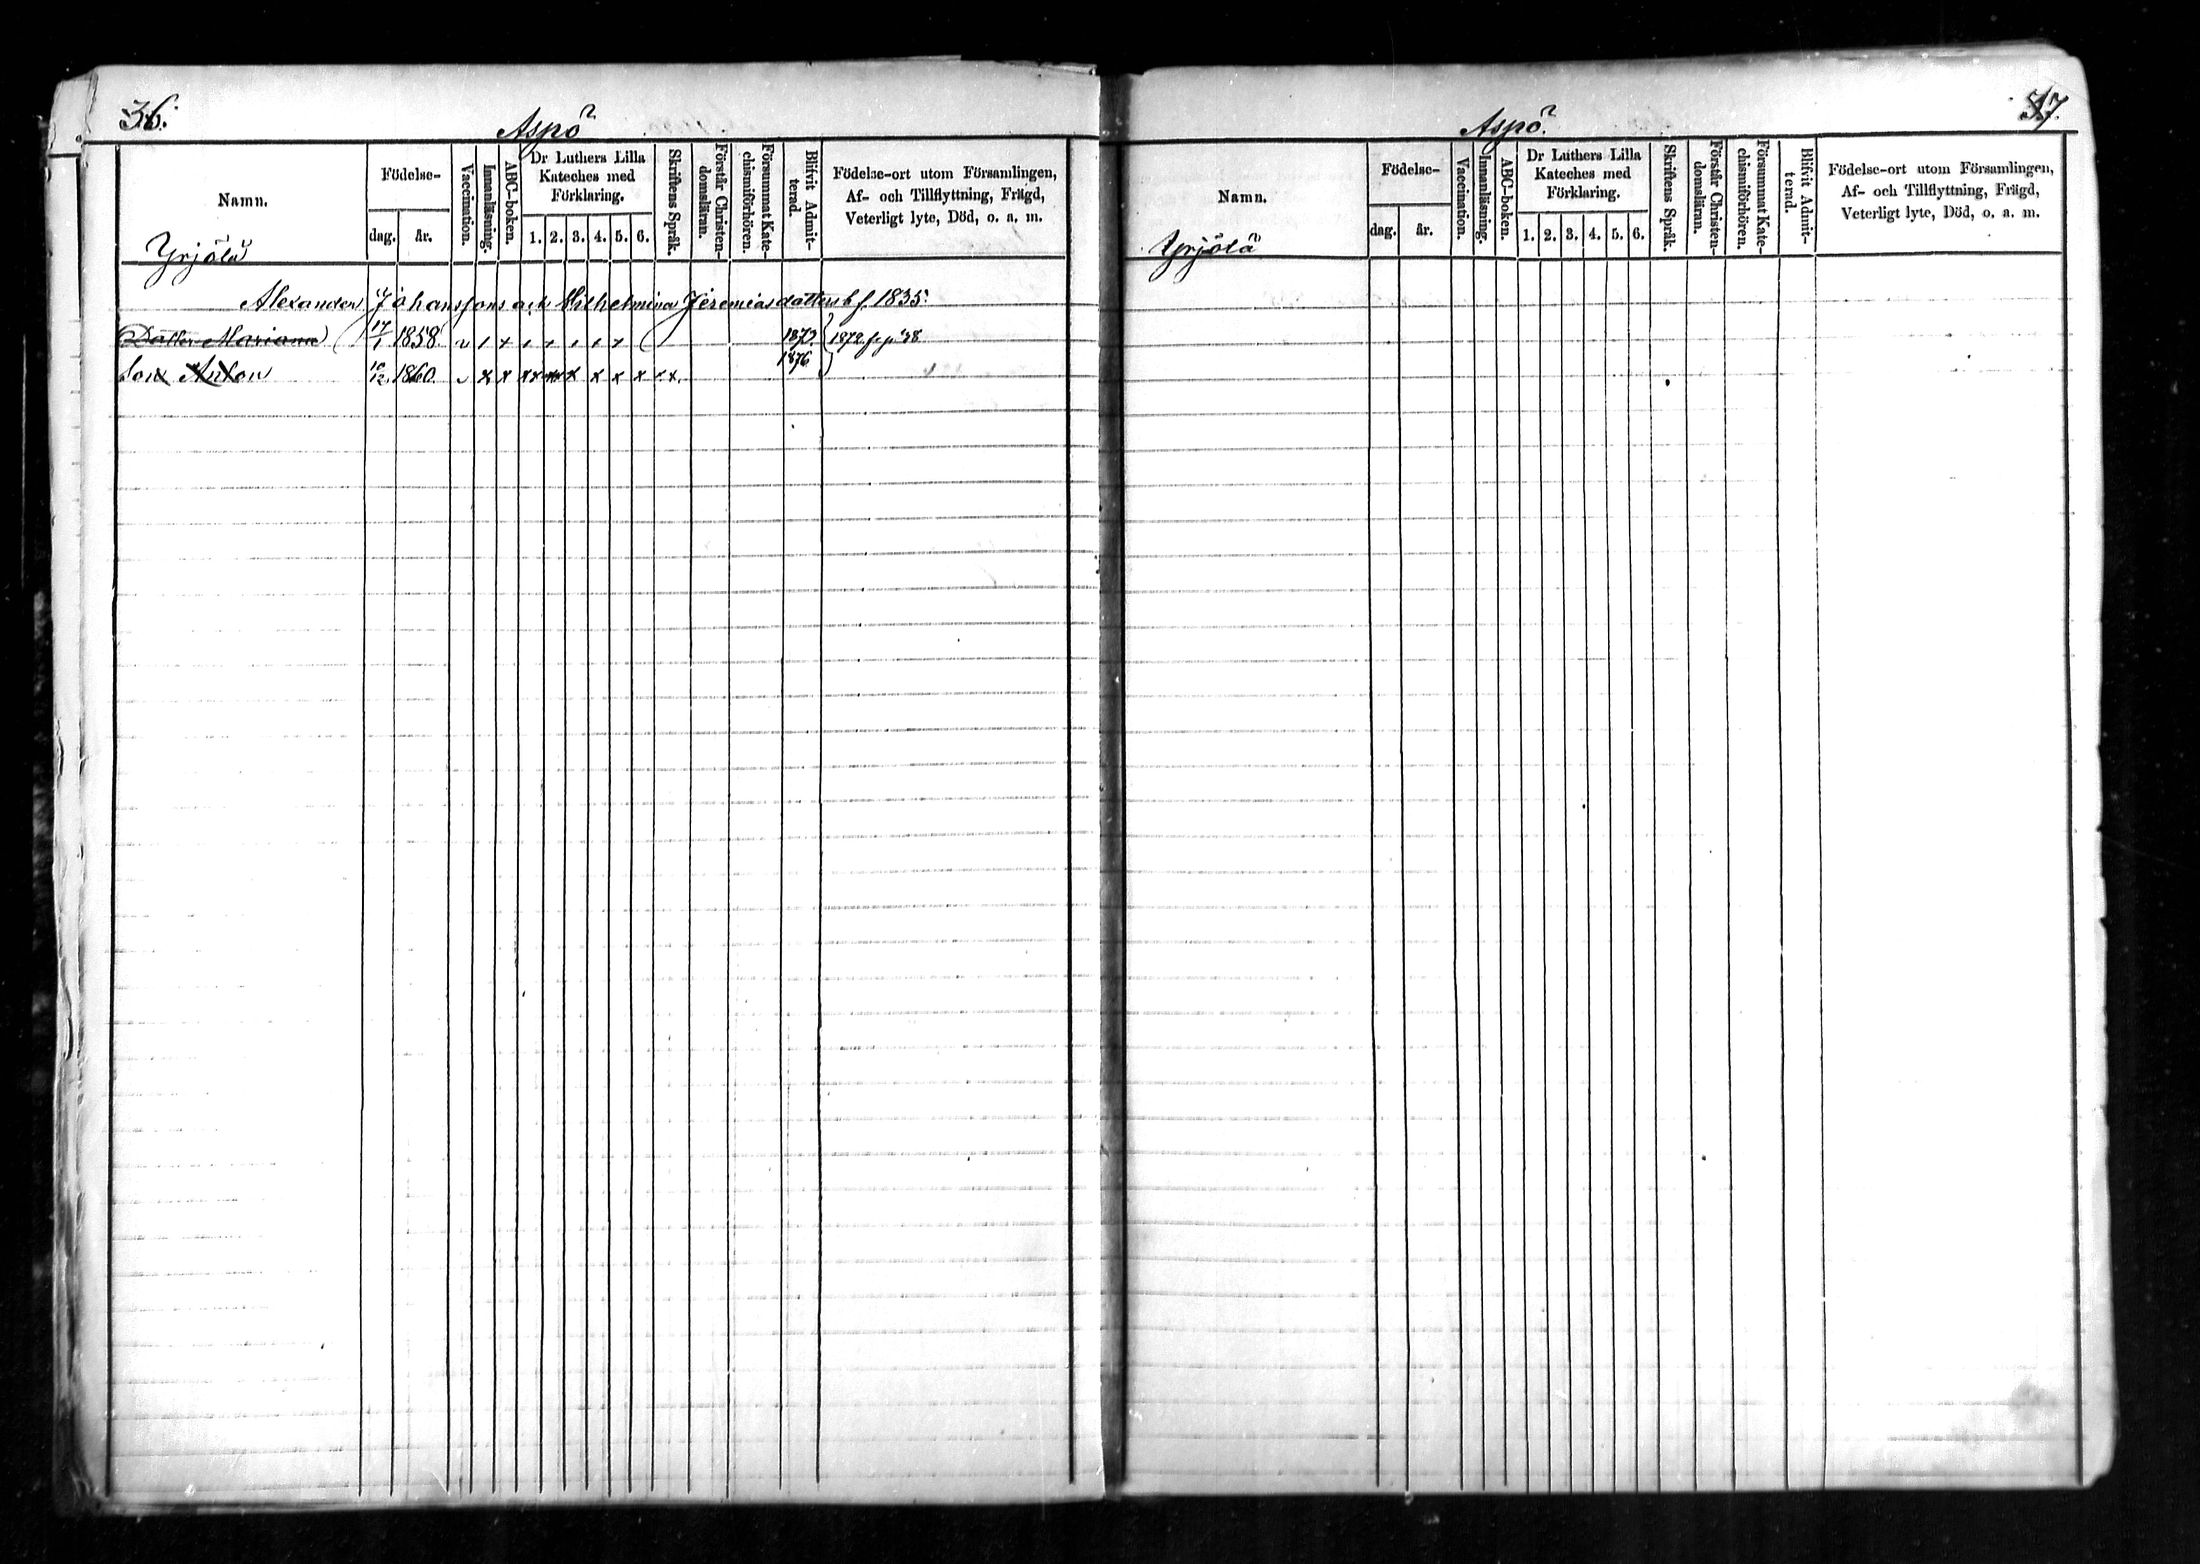 36.
Aspö
Namn.
Födelse-
dag.
år.
Vaccination.
Innanläsning.
ABC-boken.
Dr Luthers Lilla
Kateches med
Förklaring.
1. 2. 3. 4. 5. 6.
Skriftens Språk.
Förstår Christen-
domsläran.
Försummat Kate-
chismiförhören.
Blifvit Admit-
terad.
Födelse-ort utom Församlingen,
Af- och Tillflyttning, Frägd,
Veterligt lyte, Död, o. a. m.
Yrjölä
Alexander Johanssons och Wilhelmina Jeremiasdotters b f. 1835.
Dotter Mariana 17/1 1858 v / x / x / / x 1873 1872
Son Anton 10/12 1860. v x x x x x x x x x x. 1876
37.
Aspö.
Namn.
Födelse-
dag.
år.
Vaccination.
Innanläsning.
ABC-boken.
Dr Luthers Lilla
Kateches med
Förklaring.
1. 2. 3. 4. 5. 6.
Skriftens Språk.
Förstår Christen-
domsläran.
Försummat Kate-
chismiförhören.
Blifvit Admit-
terad.
Födelse-ort utom Församlingen,
Af- och Tillflyttning, Frägd,
Veterligt lyte, Död, o. a. m.
Yrjölä